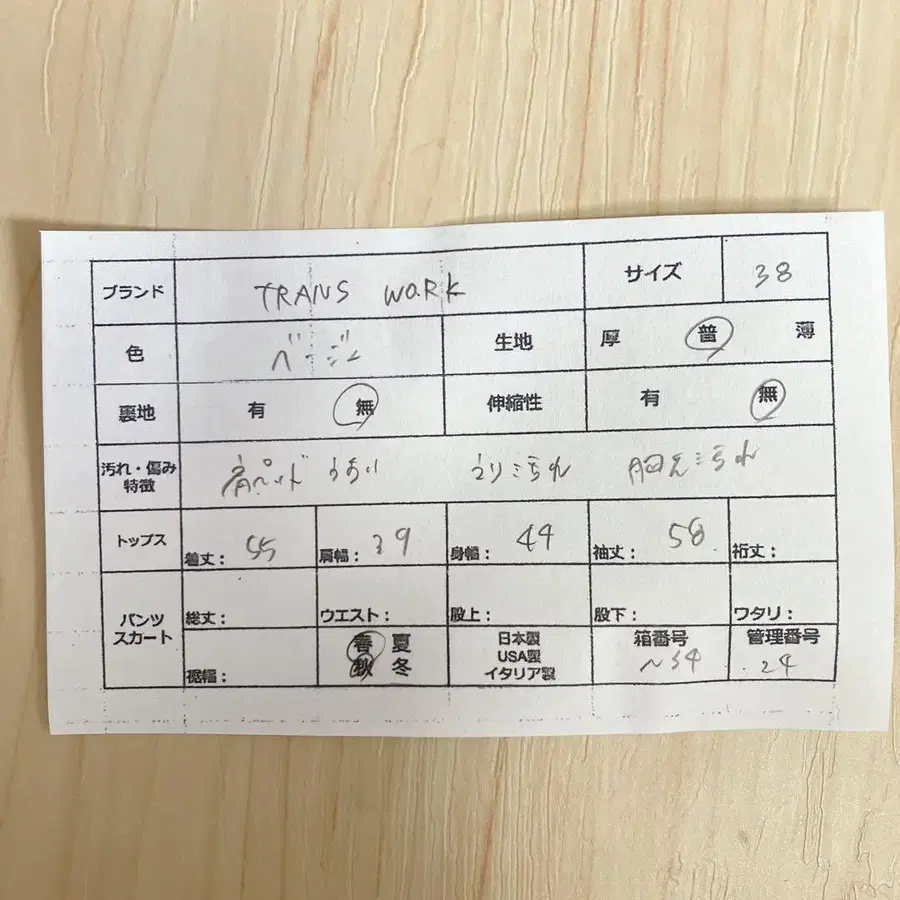 ブランド TRANS WORK サイズ 38
色 ベージュ 生地 厚 普 薄
裏地 有 無 伸縮性 有 無
汚れ・傷み 特徴 肩パッド うすい えり汚れ 胸元汚れ
トップス 着丈： 55 肩幅： 39 身幅： 44 袖丈： 58 裄丈：
パンツ スカート 総丈： ウエスト： 股上： 股下： ワタリ：
裾幅： 春 夏 秋 冬 日本製 USA製 イタリア製 箱番号 管理番号 24